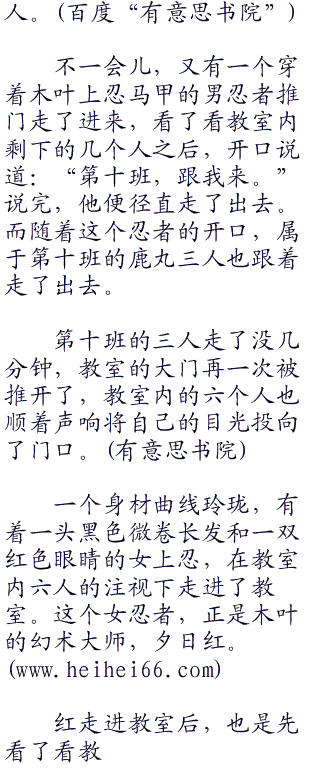 人。(百度“有意思书院”)
不一会儿，又有一个穿
着木叶上忍马甲的男忍者推
门走了进来，看了看教室内
剩下的几个人之后，开口说
道：“第十班，跟我来。”
说完，他便径直走了出去。
而随着这个忍者的开口，属
于第十班的鹿丸三人也跟着
走了出去。
第十班的三人走了没几
分钟，教室的大门再一次被
推开了，教室内的六个人也
顺着声响将自己的目光投向
了门口。(有意思书院)
一个身材曲线玲珑，有
着一头黑色微卷长发和一双
红色眼睛的女上忍，在教室
内六人的注视下走进了教
室。这个女忍者，正是木叶
的幻术大师，夕日红。
(www.heihei66.com)
红走进教室后，也是先
看了看教